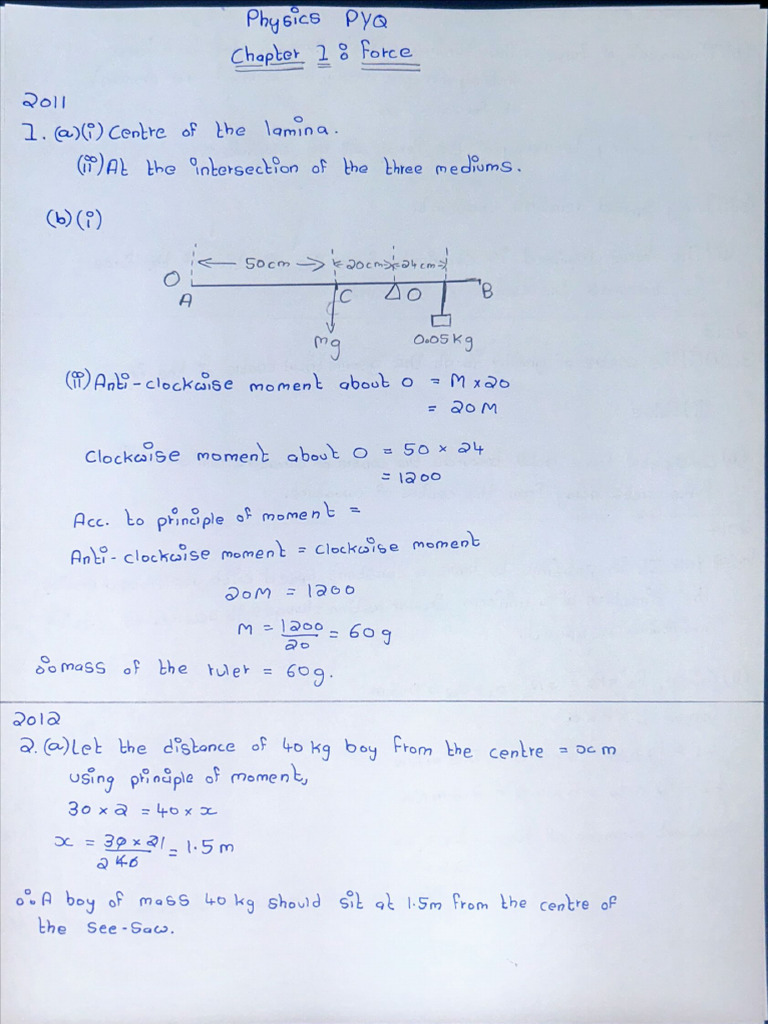 Physics PYQ
Chapter 1 : Force
2011
1. (a)(i) Centre of the lamina.
(ii) At the intersection of the three mediums.
(b)(i)
← 50cm → ←20cm→ ←24cm→
O
A C O B
mg 0.05Kg
(ii) Anti-clockwise moment about O = M × 20
= 20M
Clockwise moment about O = 50 × 24
= 1200
Acc. to principle of moment =
Anti-clockwise moment = clockwise moment
20M = 1200
M = 1200/20 = 60g
∴ mass of the ruler = 60g.
2012
2. (a) Let the distance of 40 kg boy from the centre = x m
using principle of moment,
30 × 2 = 40 × x
x = 30 × 2 1 / 2 40 = 1.5 m
∴ A boy of mass 40 kg should sit at 1.5m from the centre of
the see-saw.